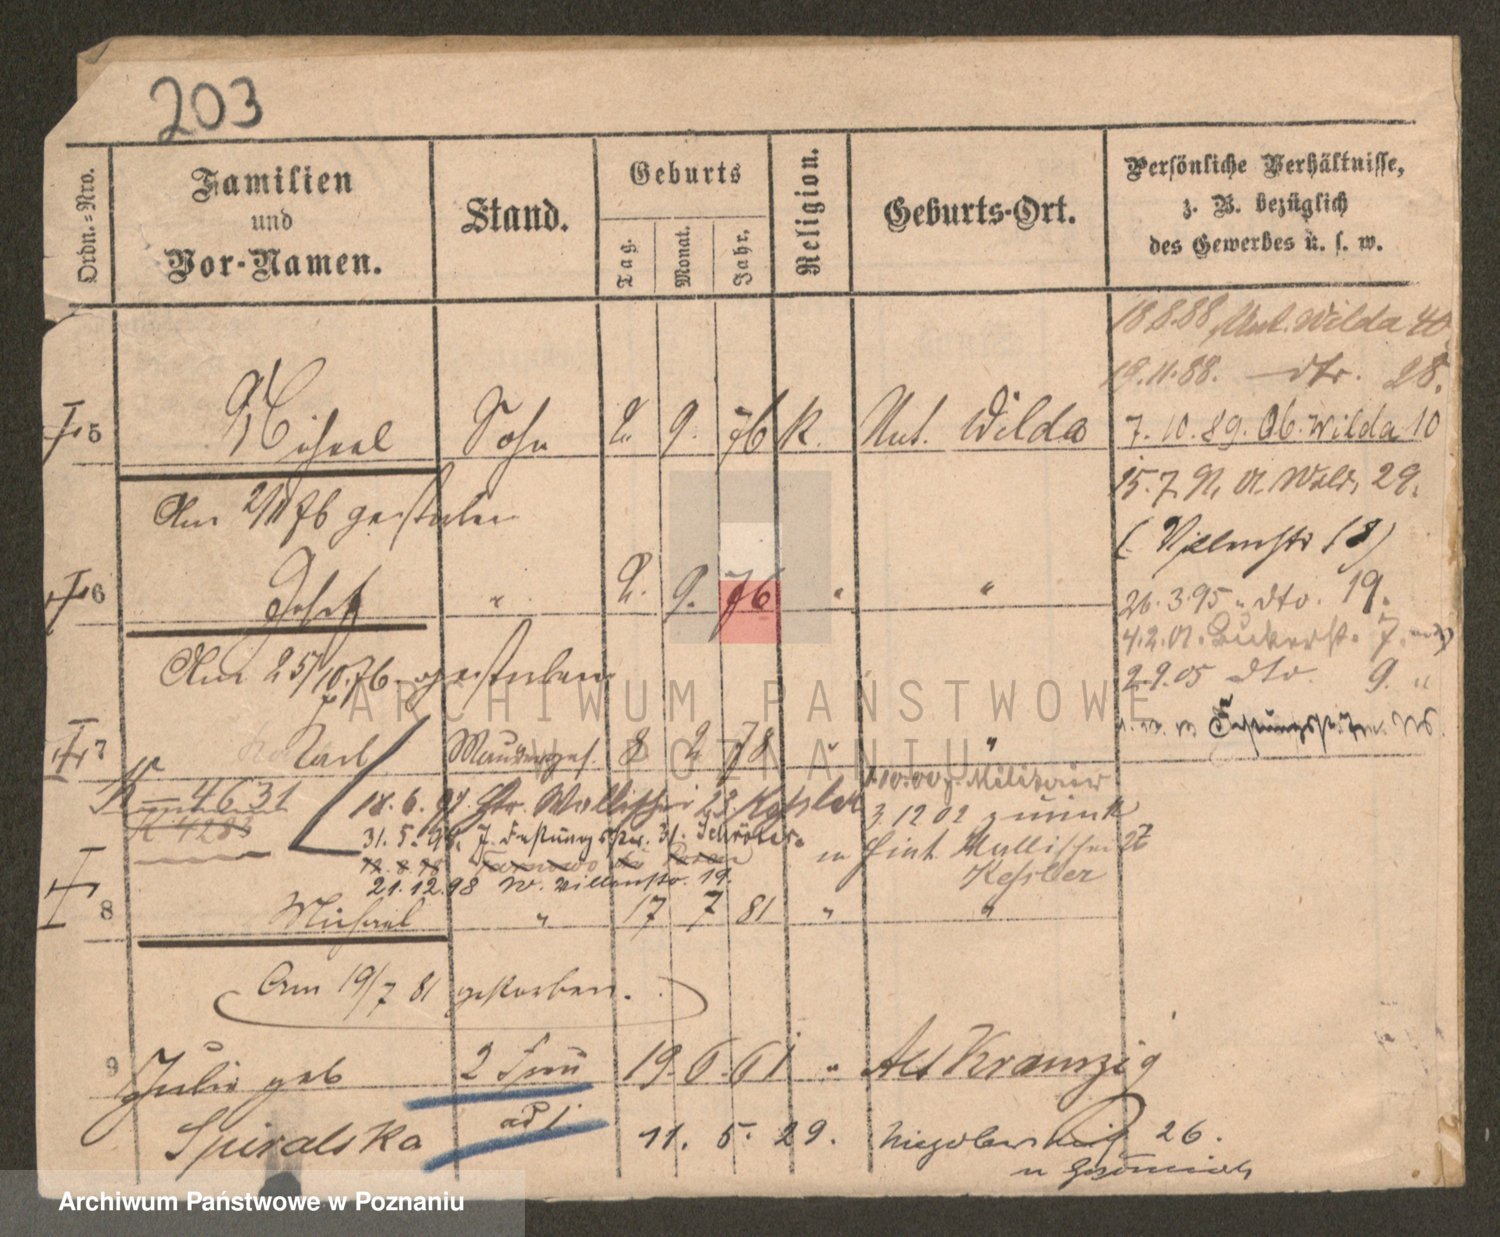 203
Ordn.=Nro.
Familien
und
Vor-Namen.
Stand.
Geburts
Tag.
Monat.
Jahr.
Religion.
Geburts-Ort.
Persönliche Verhältnisse,
z. B. bezüglich
des Gewerbes u. s. w.
18.8.88 Unt. Wilda 40
19.11.88. — dto. 28.
5 Michael Sohn 2. 9. 76 k. Unt. Wilda 7. 10. 89. Ob. Wilda 10
15. 7. 91. O. Wilda 29.
Am 2/11 76 gestorben
(Villenstr 18)
6 Josef " 2. 9. 76 " "
26. 3. 95 " dto. 19.
4. 2. 01. 7.
Am 25/10. 76. gestorben
2.9.05 dto. 9. "
7 Karl 8 2 78 " "
K — 4631
K 4283
18. 6. 97. Wallischei 23. Kessler
1.10.00 z. Militair
31. 5. 98. 31. Schröter.
3 12 02 zurück
18. 8. 98
in Wallischei 27
Kessler
21. 12. 98 W. Villenstr. 19.
8 Michael " 17 7 81 " "
Am 19/7 81 gestorben.
9 Julie geb 2 Frau 19. 6. 61 " Alt Kramzig
Spiralska 11. 5. 29. 26.
ARCHIWUM PAŃSTWOWE
W POZNANIU
Archiwum Państwowe w Poznaniu